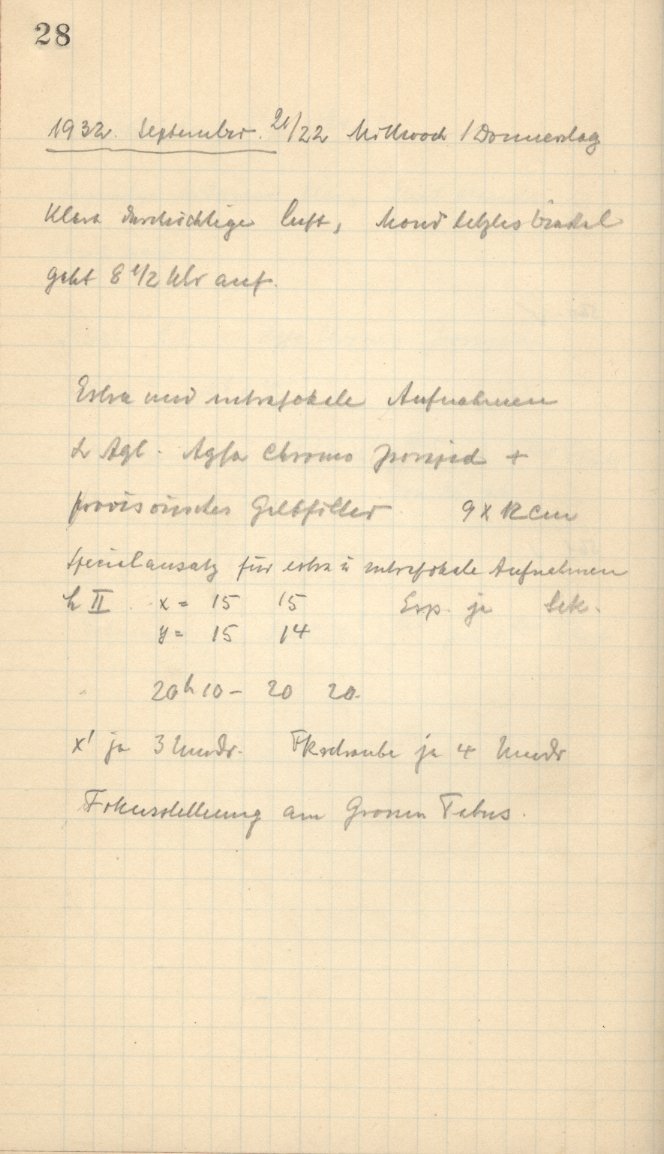 28
1932. September. 21/22 Mittwoch / Donnerstag
Klare durchsichtige Luft, Mond letztes Viertel
geht 8 1/2 Uhr auf.
Extra und intrafokale Aufnahmen
Agfa Chromo +
provisorisches Gelbfilter 9 x 12 cm
Spezialansatz für extra u intrafokale Aufnahmen
h II x = 15 15 Exp. je Sek.
y = 15 14
20h 10 - 20 20
x' je 3 Umdr. Fkschraube je 4 Umdr
Fokusstellung am Grossen Tubus.